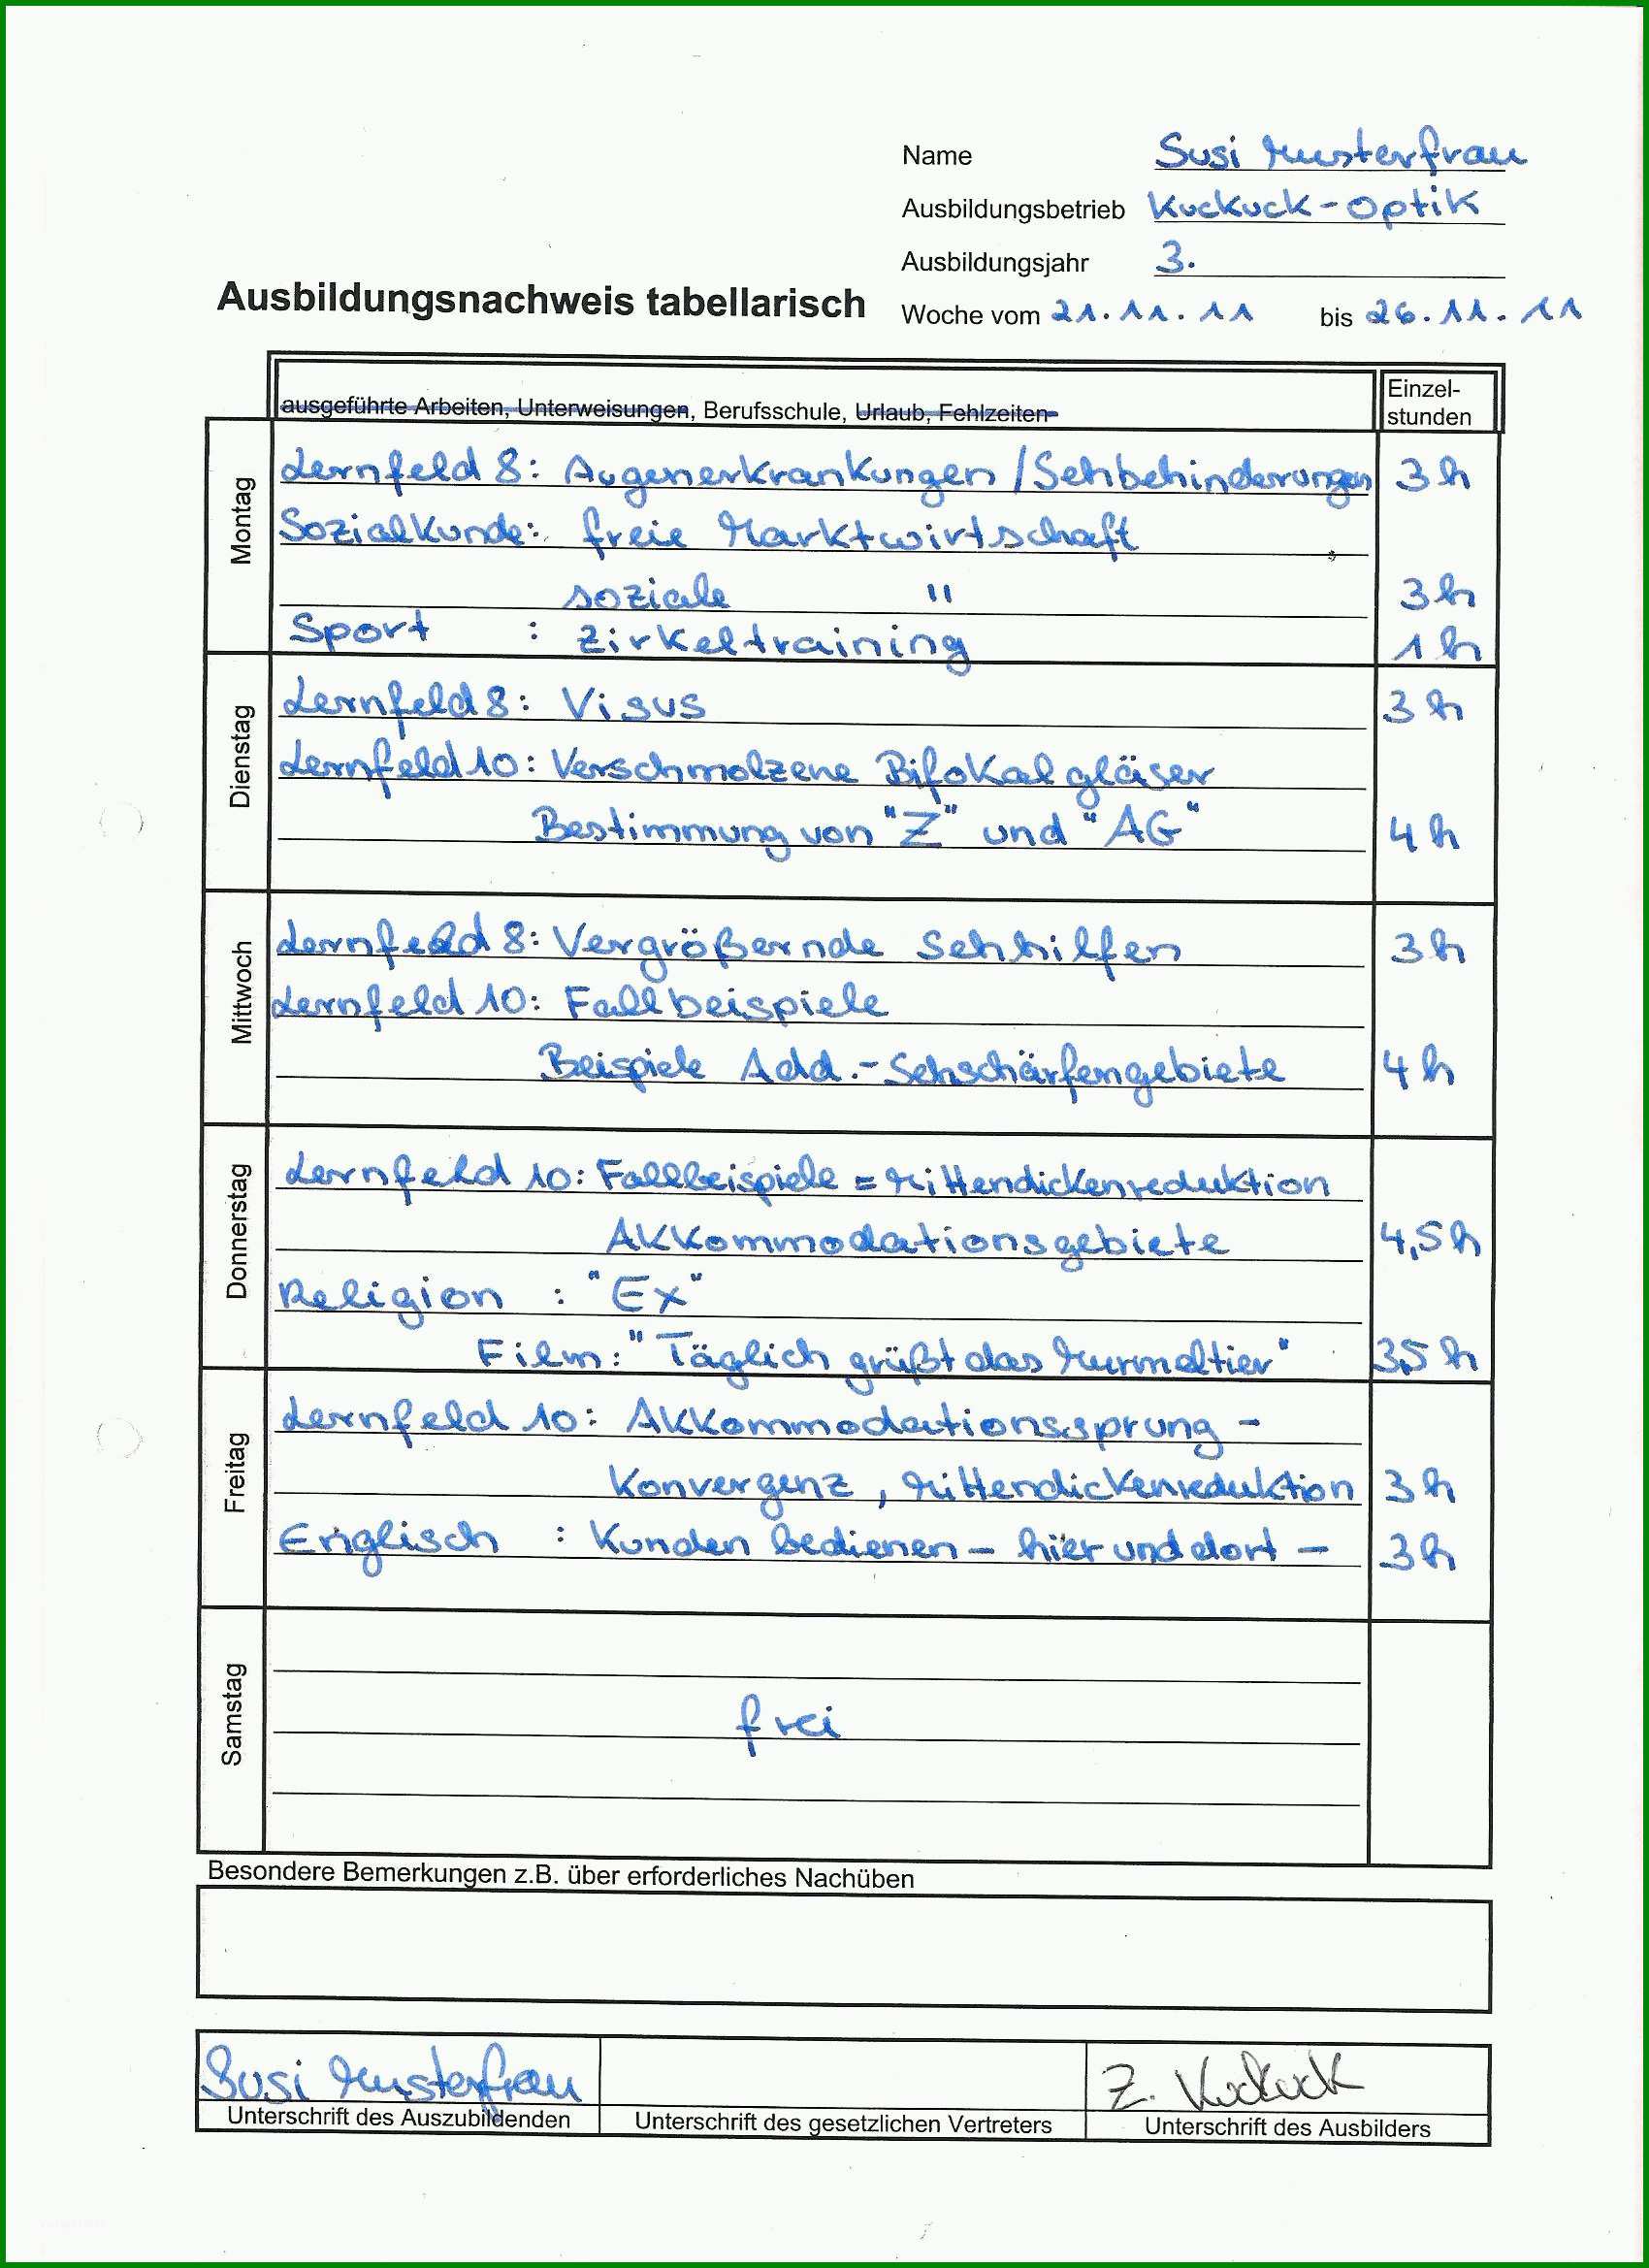 Name Susi Musterfrau
Ausbildungsbetrieb Kuckuck-Optik
Ausbildungsjahr 3.
Ausbildungsnachweis tabellarisch
Woche vom 21.11.11 bis 26.11.11
ausgeführte Arbeiten, Unterweisungen, Berufsschule, Urlaub, Fehlzeiten
Einzel-
stunden
Montag
Lernfeld 8: Augenerkrankungen / Sehbehinderungen 3h
Sozialkunde: freie Marktwirtschaft
soziale " 3h
Sport : Zirkeltraining 1h
Dienstag
Lernfeld 8: Visus 3h
Lernfeld 10: Verschmolzene Bifokalgläser
Bestimmung von "Z" und "AG" 4h
Mittwoch
Lernfeld 8: Vergrößernde Sehhilfen 3h
Lernfeld 10: Fallbeispiele
Beispiele Add.- Sehschärfengebiete 4h
Donnerstag
Lernfeld 10: Fallbeispiele = Mittendickenreduktion
Akkommodationsgebiete 4,5h
Religion : "Ex"
Film: "Täglich grüßt das Murmeltier" 3,5h
Freitag
Lernfeld 10: Akkommodationssprung -
Konvergenz, Mittendickenreduktion 3h
Englisch : Kunden bedienen - hier und dort - 3h
Samstag
frei
Besondere Bemerkungen z.B. über erforderliches Nachüben
Susi Musterfrau
Z. Kuckuck
Unterschrift des Auszubildenden
Unterschrift des gesetzlichen Vertreters
Unterschrift des Ausbilders